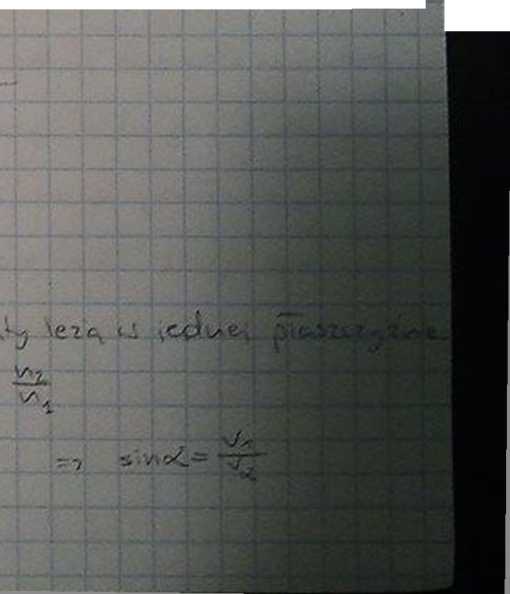 leżą w jednej płaszczyźnie
n₂/n₁
=> sinα = v₁/v₂